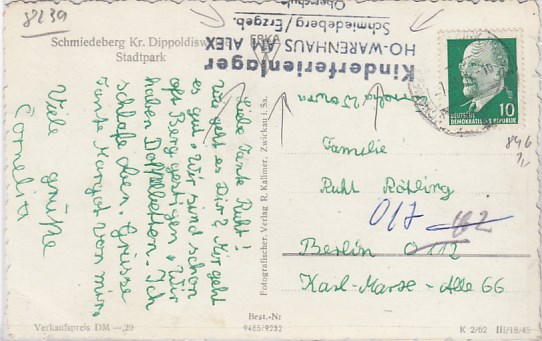 8239
Schmiedeberg Kr. Dippoldis
Stadtpark
Kinderferienlager
HO-WARENHAUS AM ALEX
Schmiedeberg/Erzgeb.
Oberschule
10
DEUTSCHE
DEMOKRATISCHE REPUBLIK
846
Liebe Tante Ruht!
Wie geht es Dir? Mir geht
es gut. Wir sind schon
oft Berg gestigen. Wir
haben Doppelbetten. Ich
schlafe oben. Grüsse
Tante Margot von mir.
Viele grüße
Cornelia
Fotografischer Verlag R. Kallmer, Zwickau i. Sa.
Familie
Ruht Röhling
017 112
Berlin O 112
Karl-Marse-Alle 66
Verkaufspreis DM -,20
Best.-Nr
9485/9232
K 2/62 III/18/45